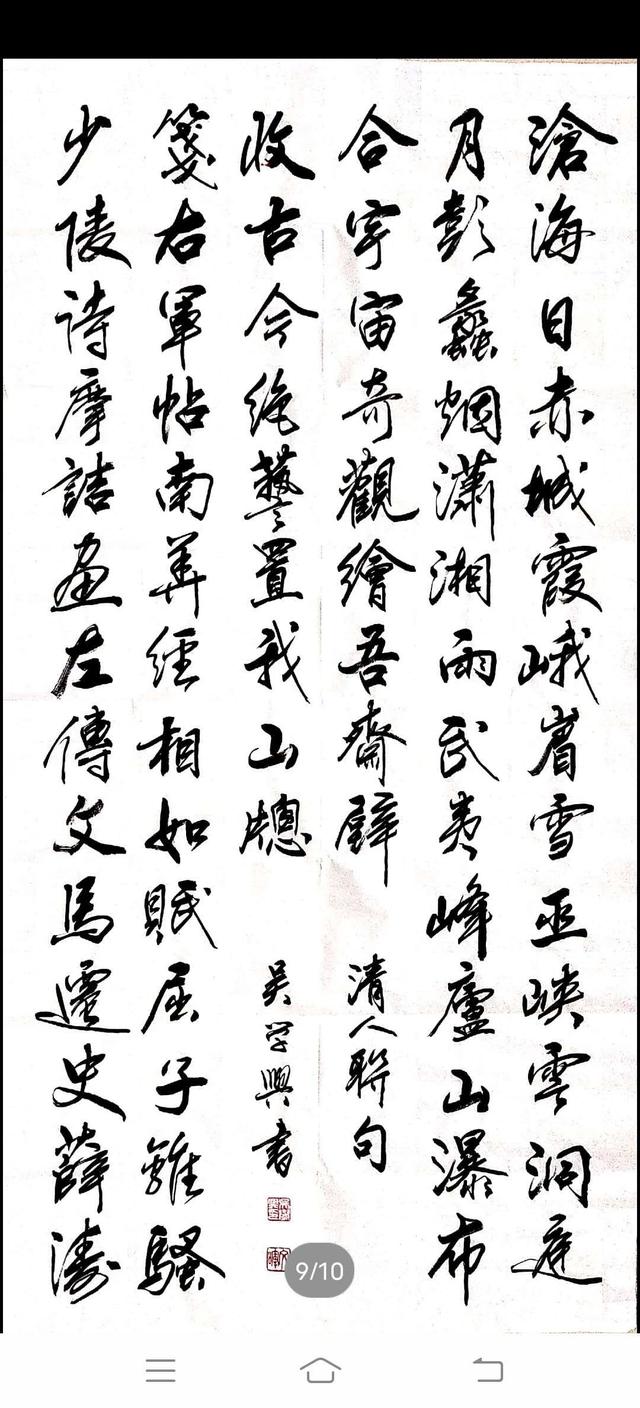 滄海日赤城霞峨眉雪巫峽雲洞庭
月彭蠡烟瀟湘雨武夷峰廬山瀑布
合宇宙奇觀繪吾齋壁
清人聯句
少陵诗摩詰画左傳文馬遷史薛濤
箋右軍帖南華經相如賦屈子離騷
收古今绝藝置我山牕
吴学興書
9/10